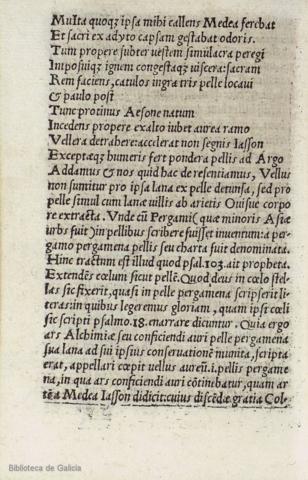 Multa quoqȝ ipsa mihi callens Medea ferebat
Et sacri ex adyto capsam gestabat odoris.
Tum propere subter uestem simulacra peregi
Imposuiqȝ ignem congestaqȝ uiscera: sacram
Rem faciens, catulos nigra tris pelle locaui
& paulo post
Tunc protinus Aesone natum
Incedens propere exalto iubet aurea ramo
Vellera detrahere: accelerat non segnis Iasson
Exceptaqȝ humeris fert pondera pellis ad Argo
Addamus & nos quid hac de resentiamus, Vellus
non sumitur pro ipsa lana ex pelle detunsa, sed pro
pelle simul cum lana uillis ab arietis Ouisue corpo
re extracta. Vnde cũ Pergami( quæ minoris Asiæ
urbs fuit )in pellibus scribere fuisset inuentum: a per
gamo pergamena pellis seu charta fuit denominata.
Hinc tractum est illud quod psal. 103. ait propheta.
Extendẽs cœlum sicut pellẽ. Quod deus in cœlo stel-
las sic fixerit, quasi in pelle pergamena scripserit li
teras: in quibus legeremus gloriam, quam ipsi cœli
sic scripti psalmo. 18. enarrare dicuntur. Quia ergo
ars Alchimiæ seu conficiendi auri pelle pergamena
sua lana ad sui ipsius conseruationẽ munita, scripta
erat, appellari cœpit uellus aureũ. i. pellis pergame
na, in qua ars conficiendi auri cõtinebatur, quam ar
tẽ a Medea Iasson didicit: cuius discẽdæ gratia Col-
Biblioteca de Galicia